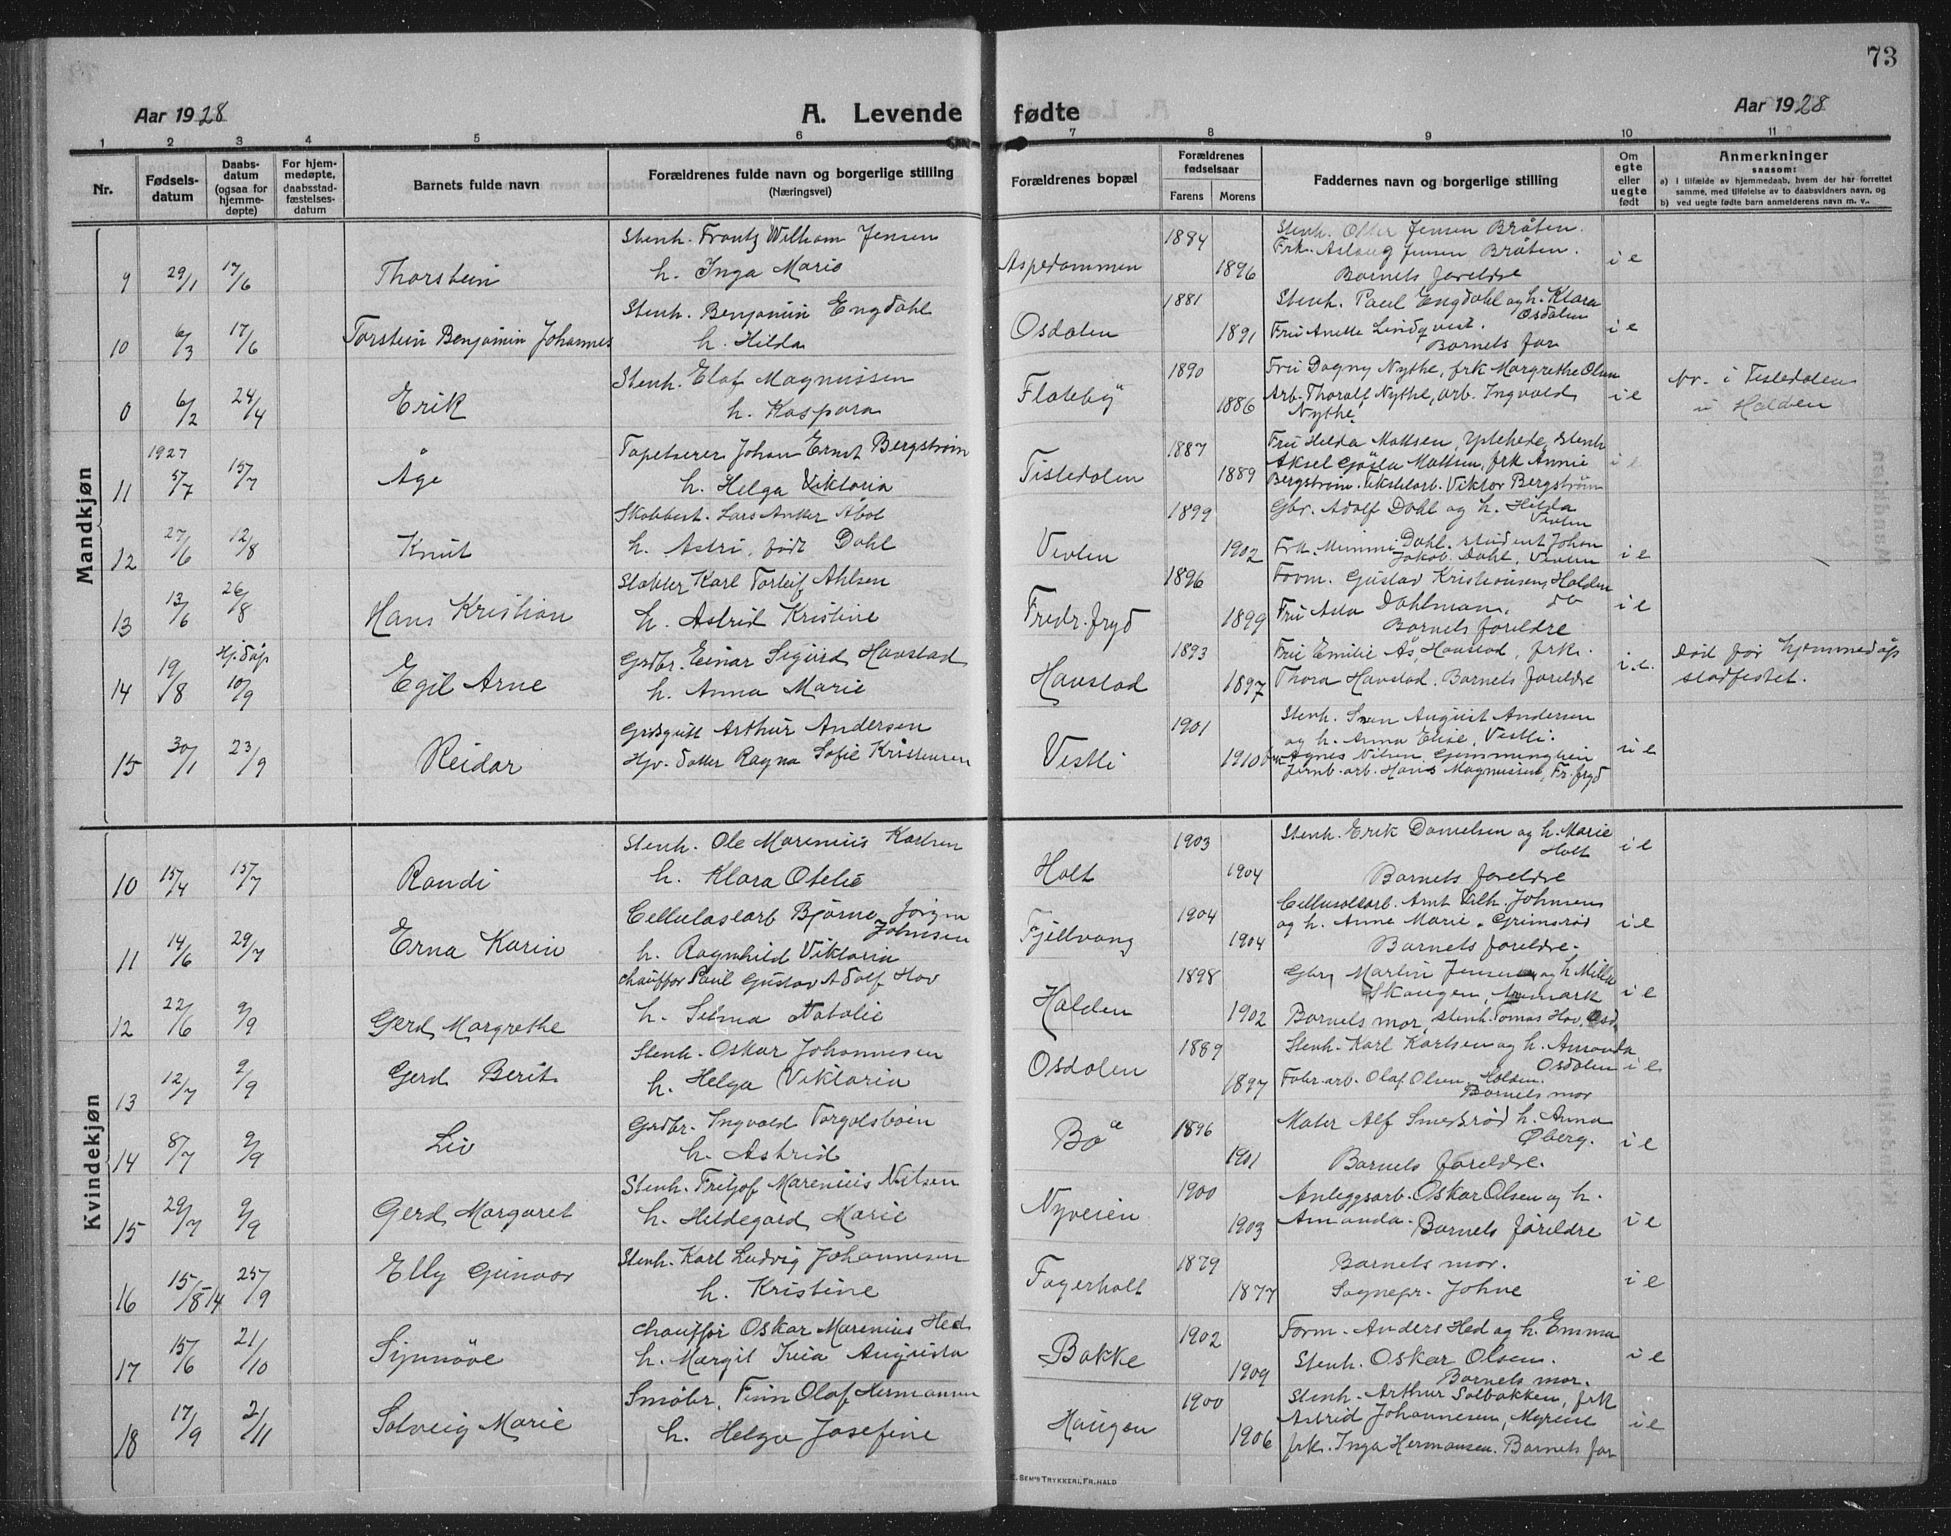 73
Aar 1928
A. Levende fødte
Aar 1928
1 2 3 4 5 6 7 8 9 10 11
Nr.
Fødsels-
datum
Daabs-
datum
(ogsaa for
hjemme-
døpte)
For hjem-
medøpte,
daabsstad-
fæstelses-
datum
Barnets fulde navn
Forældrenes fulde navn og borgerlige stilling
(Næringsvei)
Forældrenes bopæl
Forældrenes
fødselsaar
Farens Morens
Faddernes navn og borgerlige stilling
Om
egte
eller
uegte
født
Anmerkninger
saasom:
a) i tilfælde av hjemmedaab, hvem der har forrettet
samme, med tilføielse av to daabsvidners navn, og
b) ved uegte fødte barn anmelderens navn m. v..
Mandkjøn
Stenh. Frantz Wilham Jensen 1884 Stenh. Jensen Bråten.
Frk. Aslaug Jensen Bråten.
9 29/1 17/6 Thorstein h. Inga Marie Aspedammen 1896 Barnets foreldre i e
Stenh. Benjamin Engdahl 1881 Stenh. Paul Engdahl og h. Klara
Osdalen
10 6/3 17/6 Torstein Benjamin Johannes h. Hilda Osdalen 1891 Fru Anette Lindqvist. i e
Barnets far
Stenh. Elof Magnussen 1890 Fru Dagny Nythe, frk Margrethe Olsen
0 6/2 24/4 Erik h. Kaspara Flateby 1886 Arb. Thoralf Nythe, arb. Ingvald i e nr. i Tistedalen
Nythe i Halden
1927 Tapetserer Johan Ernst Bergstrøm 1887 Fru Hilda Mattsen, Stenh
Aksel Gösta Mattsen, frk Annie
11 5/7 15/7 Åge h. Helga Viktoria Tistedalen 1889 Bergstrøm. Tekstilarb. Viktor Bergstrøm i e
Skobbest. Lars Anker Åbol 1899 Gbr. Adolf Dahl og h. Hilda
Vevlen
12 27/6 12/8 Knut h. Astri, født Dahl Vevlen 1902 Frk. Mimmi Dahl. student Johan i e
Jakob Dahl, Vevlen
Karl Torleif Ahlsen 1896 Form. Gustav Kristiansen, Halden
13 13/6 26/8 Hans Kristian h. Astrid Kristine Fredr.fryd 1899 Fru Asta Dahlman, do i e
Barnets foreldre
Hj.dåp Grdbr. Einar Sigurd Havstad 1893 Fru Emilie Ås, Havstad, frk. død før hjemmedåp
14 19/8 10/9 Egil Arne h. Anna Marie Havstad 1897 Thora Havstad. Barnets foreldre i. e. stadfestet.
Grdsgutt Arthur Andersen 1901 Stenh. Sven August Andersen
og h. Anna Elise, Vestli.
15 30/1 23/9 Reidar Hjv. datter Ragna Sofie Kristensen Vestli 1910 Agnes Nilsen, u e
Jernb. arb. Hans Magnussen, Fr.fryd
Kvindekjøn
Stenh. Ole Marenius Karlsen 1903 Stenh. Erik Danielsen og h. Marie
Holt
10 15/4 15/7 Randi h. Klara Otelie Holt 1904 Barnets foreldre i e
Cellulosearb Bjarne Jørgen 1904 Cellulosearb. Arnt Vilh. Johnsen
Johnsen og h. Anne Marie. Grimsrød
11 14/6 29/7 Erna Karin h. Ragnhild Viktoria Fjellvang 1904 Barnets foreldre. i e
chauffør Paul Gustav Adolf Hov 1898 Gbr Martin Jensen og h Milla
Skaugen, Aremark
12 22/6 9/9 Gerd Margrethe h. Selma Natalie Halden 1902 Barnets mor, stenh. Tomas Hov, Osd. i e
Stenh. Oskar Johannesen 1889 Stenh. Karl Karlsen og h. Amanda
Osdalen
13 12/7 9/9 Gerd Berit h. Helga Viktoria Osdalen 1897 Fabr. arb. Olaf Olsen, Halden. i e
Barnets mor
Grdbr. Ingvald Torgolsboen 1896 Maler Alf Smedsrød h. Anna
Øberg.
14 8/7 9/9 Liv h. Astrid Bø 1901 Barnets foreldre. i e
Stenh. Fritjof Marenius Nilsen 1900 Anleggsarb. Oskar Olsen og h.
15 29/7 9/9 Gerd Margaret h. Hildegard Marie Nyveien 1903 Amanda. Barnets foreldre i e
Stenh. Karl Ludvig Johannesen 1879 Barnets mor.
16 15/8-14 25/9 Elly Gunvor h. Kristine Fagerholt 1877 Sognepr. Johne i e
chauffør Oskar Marenius Hed 1902 Form. Anders Hed og h. Emma
17 15/6 21/10 Synnøve h. Margit Irea Augusta Bakke 1909 Stenh. Oskar Olsen. i e
Barnets mor.
Småbr. Finn Olaf Hermansen 1900 Stenh. Arthur Solbakken, frk
Astrid Johannesen, Myrene
18 17/9 2/11 Solveig Marie h. Helga Josefine Haugen 1906 frk. Inga Hermansen. Barnets far i e
E. SEM'S TRYKKERI, FR.HALD